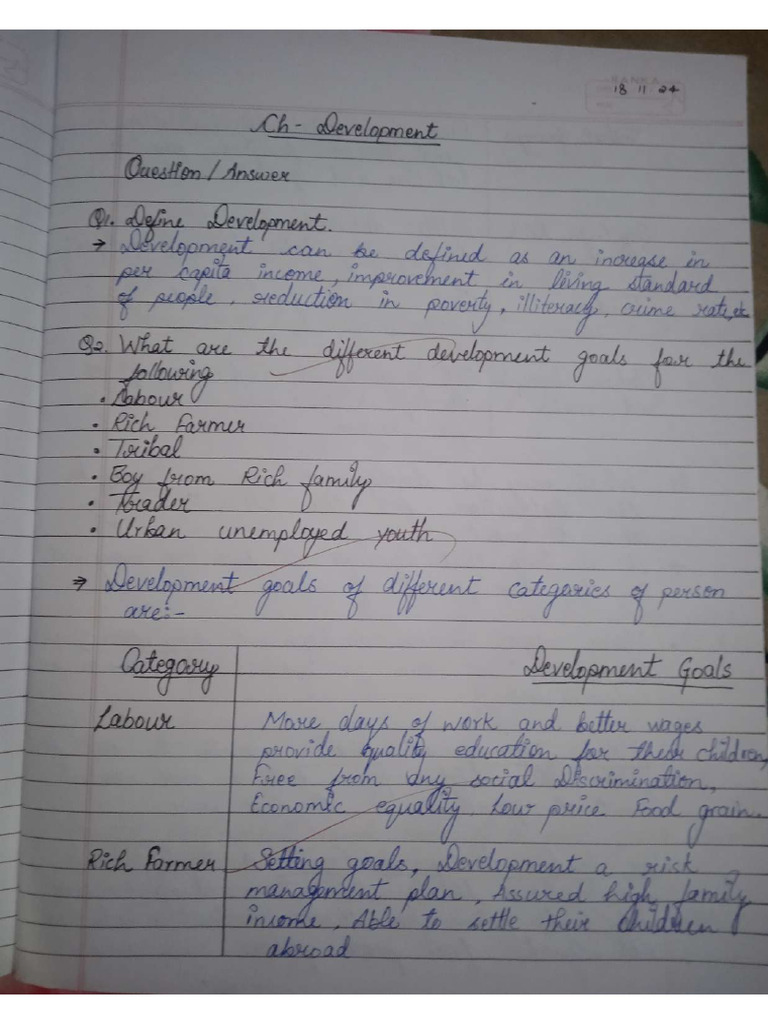 18 11 24
Ch - Development
Question / Answer
Q1. Define Development.
→ Development can be defined as an increase in
per capita income, improvement in living standard
of people, reduction in poverty, illiteracy, crime rate, etc
Q2. What are the different development goals for the
following
• Labour
• Rich Farmer
• Tribal
• Boy from Rich family
• Trader
• Urban unemployed youth
⇒ Development goals of different categories of person
are:-
Category Development Goals
Labour More days of work and better wages
provide quality education for their children,
Free from any social Discrimination,
Economic equality, Low price Food grain
Rich Farmer Setting goals, Development a risk
management plan, Assured high family
income, Able to settle their children
abroad